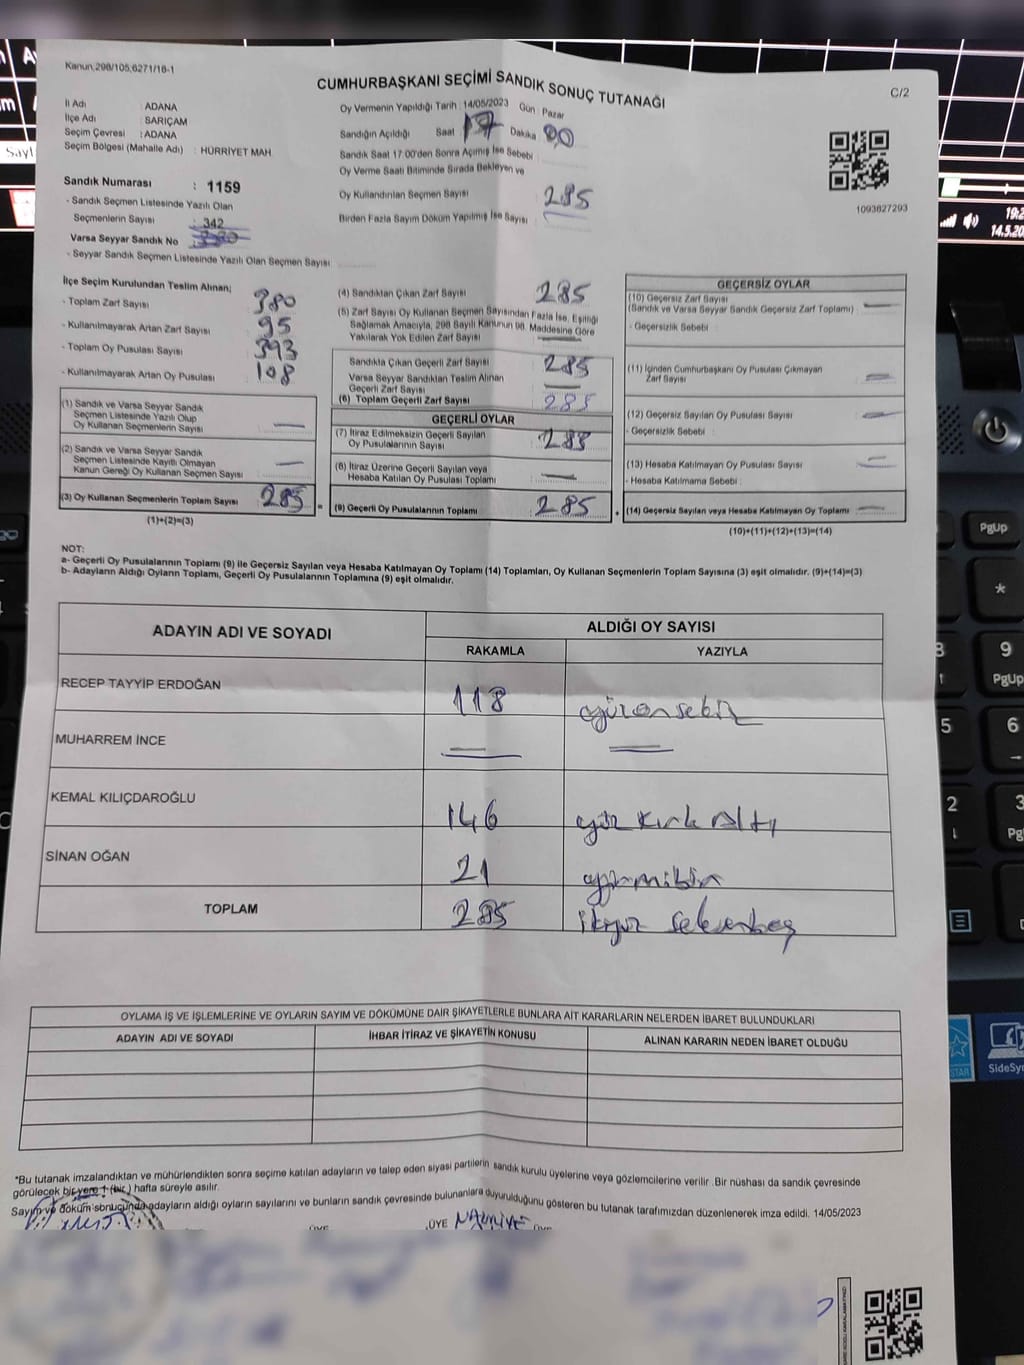 Kanun,298/105,6271/16-1
CUMHURBAŞKANI SEÇİMİ SANDIK SONUÇ TUTANAĞI
C/2
İl Adı : ADANA
İlçe Adı : SARIÇAM
Seçim Çevresi : ADANA
Seçim Bölgesi (Mahalle Adı) : HÜRRİYET MAH.
Sandık Numarası : 1159
- Sandık Seçmen Listesinde Yazılı Olan
Seçmenlerin Sayısı : 342
Varsa Seyyar Sandık No
- Seyyar Sandık Seçmen Listesinde Yazılı Olan Seçmen Sayısı
Oy Vermenin Yapıldığı Tarih : 14/05/2023 Gün : Pazar
Sandığın Açıldığı Saat 17 Dakika 00
Sandık Saat 17:00'den Sonra Açmış İse Sebebi
Oy Verme Saati Bitiminde Sırada Bekleyen ve
Oy Kullandırılan Seçmen Sayısı 285
Birden Fazla Sayım Döküm Yapılmış İse Sayısı
1093627293
19:2
14.5.20
İlçe Seçim Kurulundan Teslim Alınan;
- Toplam Zarf Sayısı 380
- Kullanılmayarak Artan Zarf Sayısı 95
- Toplam Oy Pusulası Sayısı 393
- Kullanılmayarak Artan Oy Pusulası 108
(1) Sandık ve Varsa Seyyar Sandık
Seçmen Listesinde Yazılı Olup
Oy Kullanan Seçmenlerin Sayısı —
(2) Sandık ve Varsa Seyyar Sandık
Seçmen Listesinde Kayıtlı Olmayan
Kanun Gereği Oy Kullanan Seçmen Sayısı —
(3) Oy Kullanan Seçmenlerin Toplam Sayısı 285
(1)+(2)=(3)
(4) Sandıktan Çıkan Zarf Sayısı 285
(5) Zarf Sayısı Oy Kullanan Seçmen Sayısından Fazla İse, Eşitliği
Sağlamak Amacıyla, 298 Sayılı Kanunun 98. Maddesine Göre
Yakılarak Yok Edilen Zarf Sayısı —
Sandıkta Çıkan Geçerli Zarf Sayısı 285
Varsa Seyyar Sandıktan Teslim Alınan
Geçerli Zarf Sayısı —
(6) Toplam Geçerli Zarf Sayısı 285
GEÇERLİ OYLAR
(7) İtiraz Edilmeksizin Geçerli Sayılan
Oy Pusulalarının Sayısı 285
(8) İtiraz Üzerine Geçerli Sayılan veya
Hesaba Katılan Oy Pusulası Toplamı —
= (9) Geçerli Oy Pusulalarının Toplamı 285
GEÇERSİZ OYLAR
(10) Geçersiz Zarf Sayısı
(Sandık ve Varsa Seyyar Sandık Geçersiz Zarf Toplamı) : —
- Geçersizlik Sebebi :
(11) İçinden Cumhurbaşkanı Oy Pusulası Çıkmayan
Zarf Sayısı —
(12) Geçersiz Sayılan Oy Pusulası Sayısı —
- Geçersizlik Sebebi :
(13) Hesaba Katılmayan Oy Pusulası Sayısı —
- Hesaba Katılmama Sebebi :
+ (14) Geçersiz Sayılan veya Hesaba Katılmayan Oy Toplamı —
(10)+(11)+(12)+(13)=(14)
NOT:
a- Geçerli Oy Pusulalarının Toplamı (9) ile Geçersiz Sayılan veya Hesaba Katılmayan Oy Toplamı (14) Toplamları, Oy Kullanan Seçmenlerin Toplam Sayısına (3) eşit olmalıdır. (9)+(14)=(3)
b- Adayların Aldığı Oyların Toplamı, Geçerli Oy Pusulalarının Toplamına (9) eşit olmalıdır.
ADAYIN ADI VE SOYADI ALDIĞI OY SAYISI
RAKAMLA YAZIYLA
RECEP TAYYİP ERDOĞAN 118 yüzonsekiz
MUHARREM İNCE — —
KEMAL KILIÇDAROĞLU 146 yüz kırk altı
SİNAN OĞAN 21 yirmibir
TOPLAM 285 ikiyüz seksenbeş
OYLAMA İŞ VE İŞLEMLERİNE VE OYLARIN SAYIM VE DÖKÜMÜNE DAİR ŞİKAYETLERLE BUNLARA AİT KARARLARIN NELERDEN İBARET BULUNDUKLARI
ADAYIN ADI VE SOYADI İHBAR İTİRAZ VE ŞİKAYETİN KONUSU ALINAN KARARIN NEDEN İBARET OLDUĞU
*Bu tutanak imzalandıktan ve mühürlendikten sonra seçime katılan adayların ve talep eden siyasi partilerin sandık kurulu üyelerine veya gözlemcilerine verilir. Bir nüshası da sandık çevresinde
görülecek bir yere 1 (bir) hafta süreyle asılır.
Sayım ve döküm sonucunda adayların aldığı oyların sayılarını ve bunların sandık çevresinde bulunanlara duyurulduğunu gösteren bu tutanak tarafımızdan düzenlenerek imza edildi. 14/05/2023
ÜYE ÜYE NAZLİYE ÜYE
PgUp
*
9
PgUp
5
6
2
3
SideSy
STAR